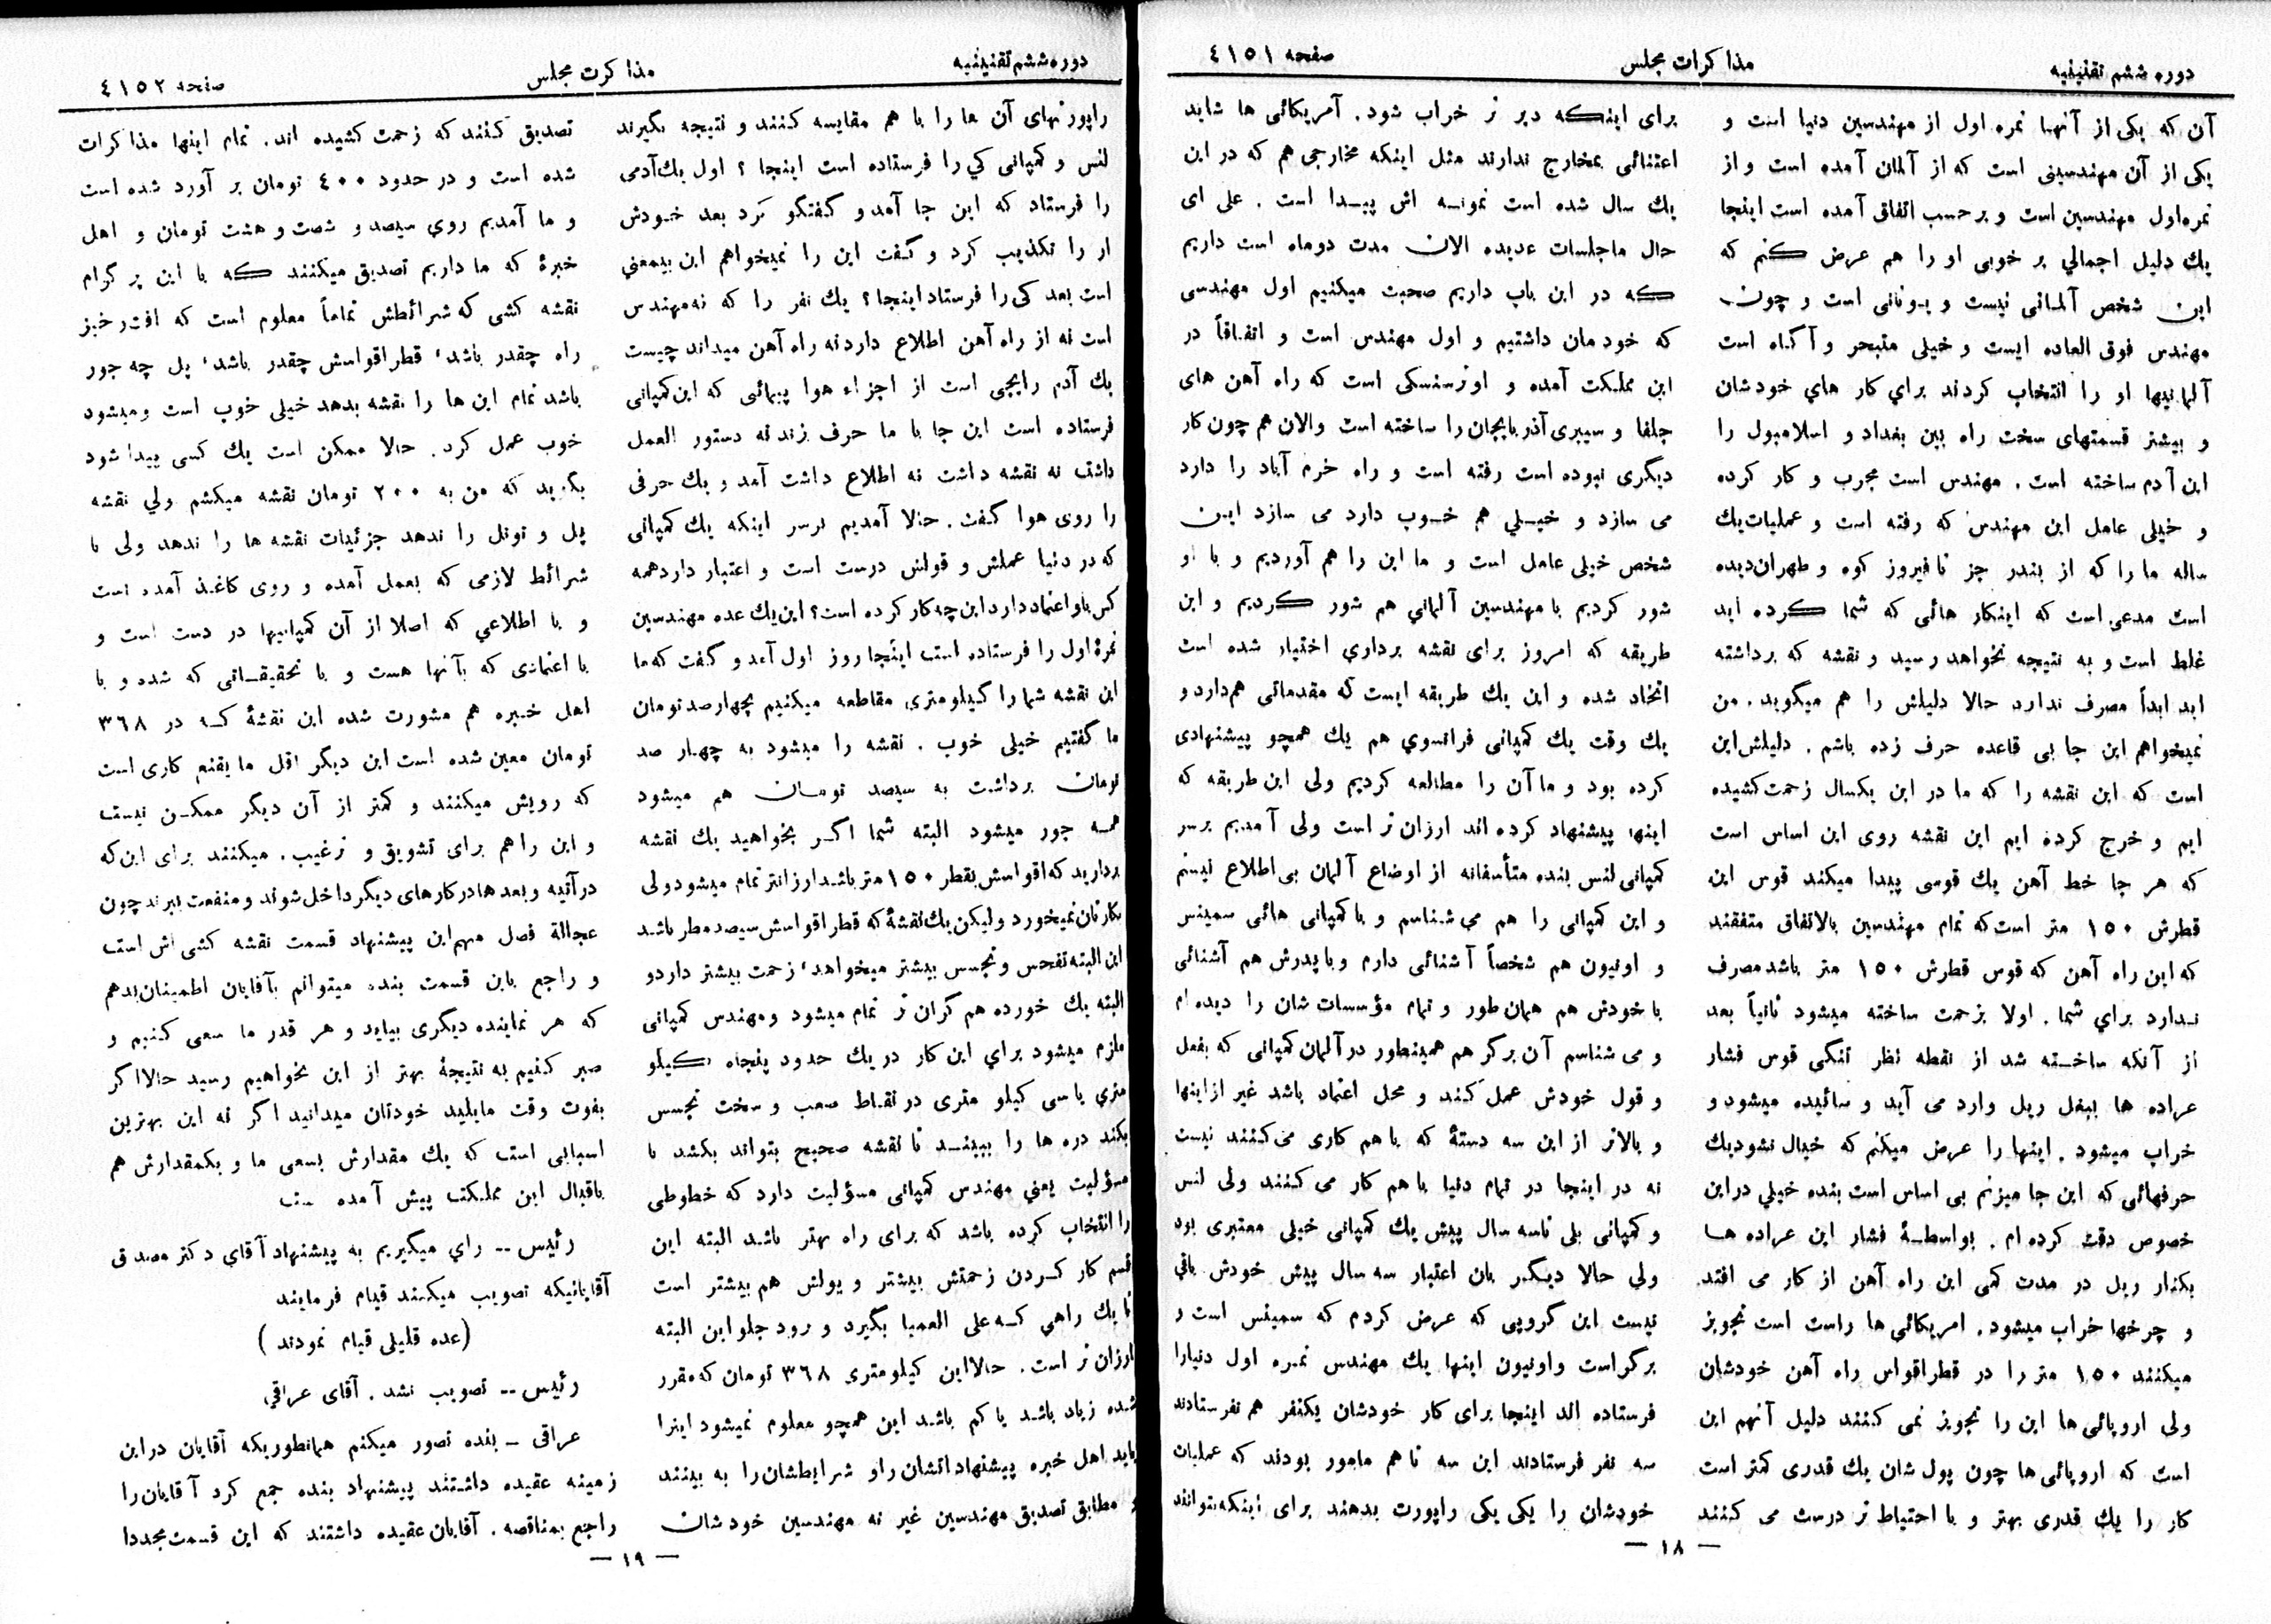 دوره ششم تقنینیه
مذاکرات مجلس
صفحه ٤١٥١
آن که یکی از آنها نمره اول از مهندسین دنیا است و
یکی از آن مهندسینی است که از آلمان آمده است و از
نمره اول مهندسین است و برحسب اتفاق آمده است اینجا
یك دلیل اجمالي بر خوبی او را هم عرض کنم که
این شخص آلمانی نیست و یونانی است و چون
مهندس فوق العاده ایست و خیلی متبحر و آگاه است
آلمانیها او را انتخاب کردند برای کار های خودشان
و بیشتر قسمتهای سخت راه بین بغداد و اسلامبول را
این آدم ساخته است . مهندس است مجرب و کار کرده
و خیلی عامل این مهندس که رفته است و عملیات یك
ساله ما را که از بندر جز تا فیروز کوه و طهران دیده
است مدعی است که اینکار هائی که شما کرده اید
غلط است و به نتیجه نخواهد رسید و نقشه که برداشته
اید ابداً مصرف ندارد حالا دلیلش را هم میگوید . من
نمیخواهم این جا بی قاعده حرف زده باشم . دلیلش این
است که این نقشه را که ما در این یکسال زحمت کشیده
ایم و خرج کرده ایم این نقشه روی این اساس است
که هر جا خط آهن یك قوسی پیدا میکند قوس این
قطرش ۱۵۰ متر است که تمام مهندسین بالاتفاق متفقند
که این راه آهن که قوس قطرش ۱۵۰ متر باشد مصرف
ندارد براي شما . اولا بزحمت ساخته میشود ثانیاً بعد
از آنکه ساخته شد از نقطه نظر تنگی قوس فشار
عراده ها ببغل ریل وارد می آید و سائیده میشود و
خراب میشود . اینها را عرض میکنم که خیال نشود یك
حرفهائی که این جا میزنم بی اساس است بنده خیلي در این
خصوص دقت کرده ام . بواسطهٔ فشار این عراده ها
بکنار ریل در مدت کمی این راه آهن از کار می افتد
و چرخها خراب میشود . امریکائی ها راست است تجویز
میکنند ۱۵۰ متر را در قطر اقواس راه آهن خودشان
ولی اروپائی ها این را تجویز نمی کنند دلیل آنهم این
است که اروپائی ها چون پول شان یك قدری کمتر است
کار را یك قدری بهتر و با احتیاط تر درست می کنند
برای اینکه دیر تر خراب شود . آمریکائی ها شاید
اعتنائی بمخارج ندارند مثل اینکه مخارجی هم که در این
یك سال شده است نمونه اش پیدا است . علی ای
حال ما جلسات عدیده الان مدت دو ماه است داریم
که در این باب داریم صحبت میکنیم اول مهندسی
که خودمان داشتیم و اول مهندس است و اتفاقاً در
این مملکت آمده و اوزسنسکی است که راه آهن های
جلفا و سیبری آذربایجان را ساخته است و الان هم چون کار
دیگری نبوده است رفته است و راه خرم آباد را دارد
می سازد و خیلي هم خوب دارد می سازد این
شخص خیلی عامل است و ما این را هم آوردیم و با او
شور کردیم با مهندسین آلمانی هم شور کردیم و این
طریقه که امروز برای نقشه برداری اختیار شده است
اتخاذ شده و این یك طریقه ایست که مقدماتی هم دارد و
یك وقت یك کمپانی فرانسوي هم یك همچو پیشنهادی
کرده بود و ما آن را مطالعه کردیم ولی این طریقه که
اینها پیشنهاد کرده اند ارزان تر است ولی آمدیم بر سر
کمپانی لنس بنده متأسفانه از اوضاع آلمان بی اطلاع نیستم
و این کمپانی را هم می شناسم و با کمپانی هائی سمینس
و اونیون هم شخصاً آشنائی دارم و با پدرش هم آشنائی
با خودش هم همان طور و تمام مؤسسات شان را دیده ام
و می شناسم آن برگر هم همینطور در آلمان کمپانی که بفعل
و قول خودش عمل کند و محل اعتماد باشد غیر از اینها
و بالاتر از این سه دستهٔ که با هم کاری می کنند نیست
نه در اینجا در تمام دنیا با هم کار می کنند ولی لنس
و کمپانی بلی تا سه سال پیش یك کمپانی خیلی معتبری بود
ولي حالا دیگر بان اعتبار سه سال پیش خودش باقي
نیست این گروپی که عرض کردم که سمینس است و
برگر است و اونیون اینها یك مهندس نمره اول دنیا را
فرستاده اند اینجا برای کار خودشان یکنفر هم نفرستادند
سه نفر فرستادند این سه تا هم مامور بودند که عملیات
خودشان را یکی یکی راپورت بدهند برای اینکه بتوانند
— ۱۸ —
دوره ششم تقنینیه
مذاکرت مجلس
صفحه ٤١٥٢
راپورتهای آن ها را با هم مقایسه کنند و نتیجه بگیرند
لنس و کمپانی کي را فرستاده است اینجا ؟ اول یك آدمی
را فرستاد که این جا آمد و گفتگو کرد بعد خودش
او را تکذیب کرد و گفت این را نمیخواهم این بیمعنی
است بعد کی را فرستاد اینجا ؟ یك نفر را که نه مهندس
است نه از راه آهن اطلاع دارد نه راه آهن میداند چیست
یك آدم رایجی است از اجزاء هوا پیمائی که این کمپانی
فرستاده است این جا با ما حرف بزند نه دستور العمل
داشت نه نقشه داشت نه اطلاع داشت آمد و یك حرفی
را روی هوا گفت . حالا آمدیم بر سر اینکه یك کمپانی
که در دنیا عملش و قولش درست است و اعتبار دارد همه
کس باو اعتماد دارد این چه کار کرده است ؟ این یك عده مهندسین
نمرهٔ اول را فرستاده است اینجا روز اول آمد و گفت که ما
این نقشه شما را کیلومتری مقاطعه میکنیم بچهار صد تومان
ما گفتیم خیلی خوب . نقشه را میشود به چهار صد
تومان برداشت به سیصد تومان هم میشود
همه جور میشود البته شما اگر بخواهید یك نقشه
بردارید که اقواسش بقطر ۱۵۰ متر باشد ارزانتر تمام میشود ولی
بکارتان نمیخورد ولیکن یك نقشهٔ که قطر اقواسش سیصد مطر باشد
این البته تفحس و تجسس بیشتر میخواهد، زحمت بیشتر دارد و
البته یك خورده هم گران تر تمام میشود و مهندس کمپانی
ملزم میشود براي این کار در یك حدود پنجاه کیلو
متري یا سی کیلو متری در نقاط صعب و سخت تجسس
بکند دره ها را ببیند تا نقشه صحیح بتواند بکشد با
مسؤلیت یعني مهندس کمپانی مسؤلیت دارد که خطوطی
را انتخاب کرده باشد که برای راه بهتر باشد البته این
قسم کار کردن زحمتش بیشتر و پولش هم بیشتر است
تا یك راهی که علی العمیا بگیرد و برود جلو این البته
ارزان تر است . حالا این کیلومتری ۳٦۸ تومان که مقرر
شده زیاد باشد یا کم باشد این همچو معلوم نمیشود اینرا
باید اهل خبره پیشنهاداتشان را و شرایطشان را به بینند
و مطابق تصدیق مهندسین غیر نه مهندسین خودشان
تصدیق کنند که زحمت کشیده اند . تمام اینها مذاکرات
شده است و در حدود ٤۰۰ تومان بر آورد شده است
و ما آمدیم روي سیصد و شصت و هشت تومان و اهل
خبرهٔ که ما داریم تصدیق میکنند که با این پرگرام
نقشه کشی که شرائطش تماماً معلوم است که افت و خیز
راه چقدر باشد، قطر اقواسش چقدر باشد، پل چه جور
باشد تمام این ها را نقشه بدهد خیلی خوب است و میشود
خوب عمل کرد . حالا ممکن است یك کسی پیدا شود
بگوید که من به ۲۰۰ تومان نقشه میکشم ولي نقشه
پل و تونل را ندهد جزئیات نقشه ها را ندهد ولی با
شرائط لازمی که بعمل آمده و روی کاغذ آمده است
و با اطلاعي که اصلا از آن کمپانیها در دست است و
با اعتمادی که بآنها هست و با تحقیقاتی که شده و با
اهل خبره هم مشورت شده این نقشهٔ که در ۳٦۸
تومان معین شده است این دیگر اقل ما یقنع کاری است
که رویش میکنند و کمتر از آن دیگر ممکن نیست
و این را هم برای تشویق و ترغیب . میکنند برای این که
در آتیه و بعد ها در کار های دیگر داخل شوند و منفعت ببرند چون
عجالة فصل مهم این پیشنهاد قسمت نقشه کشی اش است
و راجع باین قسمت بنده میتوانم بآقایان اطمینان بدهم
که هر نماینده دیگری بیاید و هر قدر ما سعی کنیم و
صبر کنیم به نتیجهٔ بهتر از این نخواهیم رسید حالا اگر
بفوت وقت مایلید خودتان میدانید اگر نه این بهترین
اسبابی است که یك مقدارش بسعی ما و یکمقدارش هم
باقبال این مملکت پیش آمده است
رئیس -- راي میگیریم به پیشنهاد آقاي دکتر مصدق
آقایانیکه تصویب میکنند قیام فرمایند
(عده قلیلی قیام نمودند)
رئیس -- تصویب نشد . آقای عراقي
عراقی – بنده تصور میکنم همانطوریکه آقایان در این
زمینه عقیده داشتند پیشنهاد بنده جمع کرد آقایان را
راجع بمناقصه . آقایان عقیده داشتند که این قسمت مجددا
— ۱۹ —